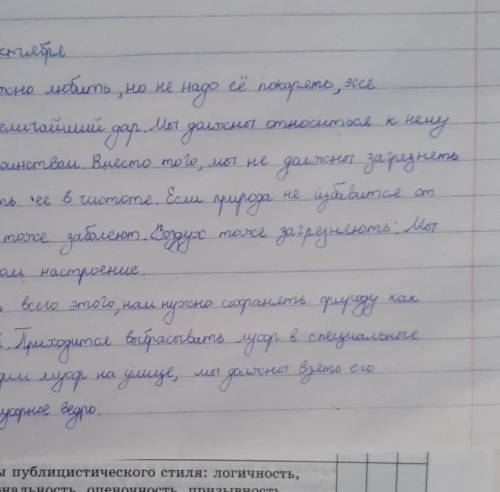 ктября
жно любить, но не надо её покорять, эсе
еличайший дар. Мы должны относиться к нему
аинством. Вместо того, мы не должны загрезнеть
ть ее в чистоте. Если природа не избавится от
тоже заболеют. Воздух тоже загрезняють. Мы
ом настроение.
всего этого, нам нужно сохранять природу как
Приходится выбрасывать мусор в специальные
дим мусор на улице, мы должны взять его
усорное ведро.
ы публицистического стиля: логичность,
ональность, оценочность, призывность